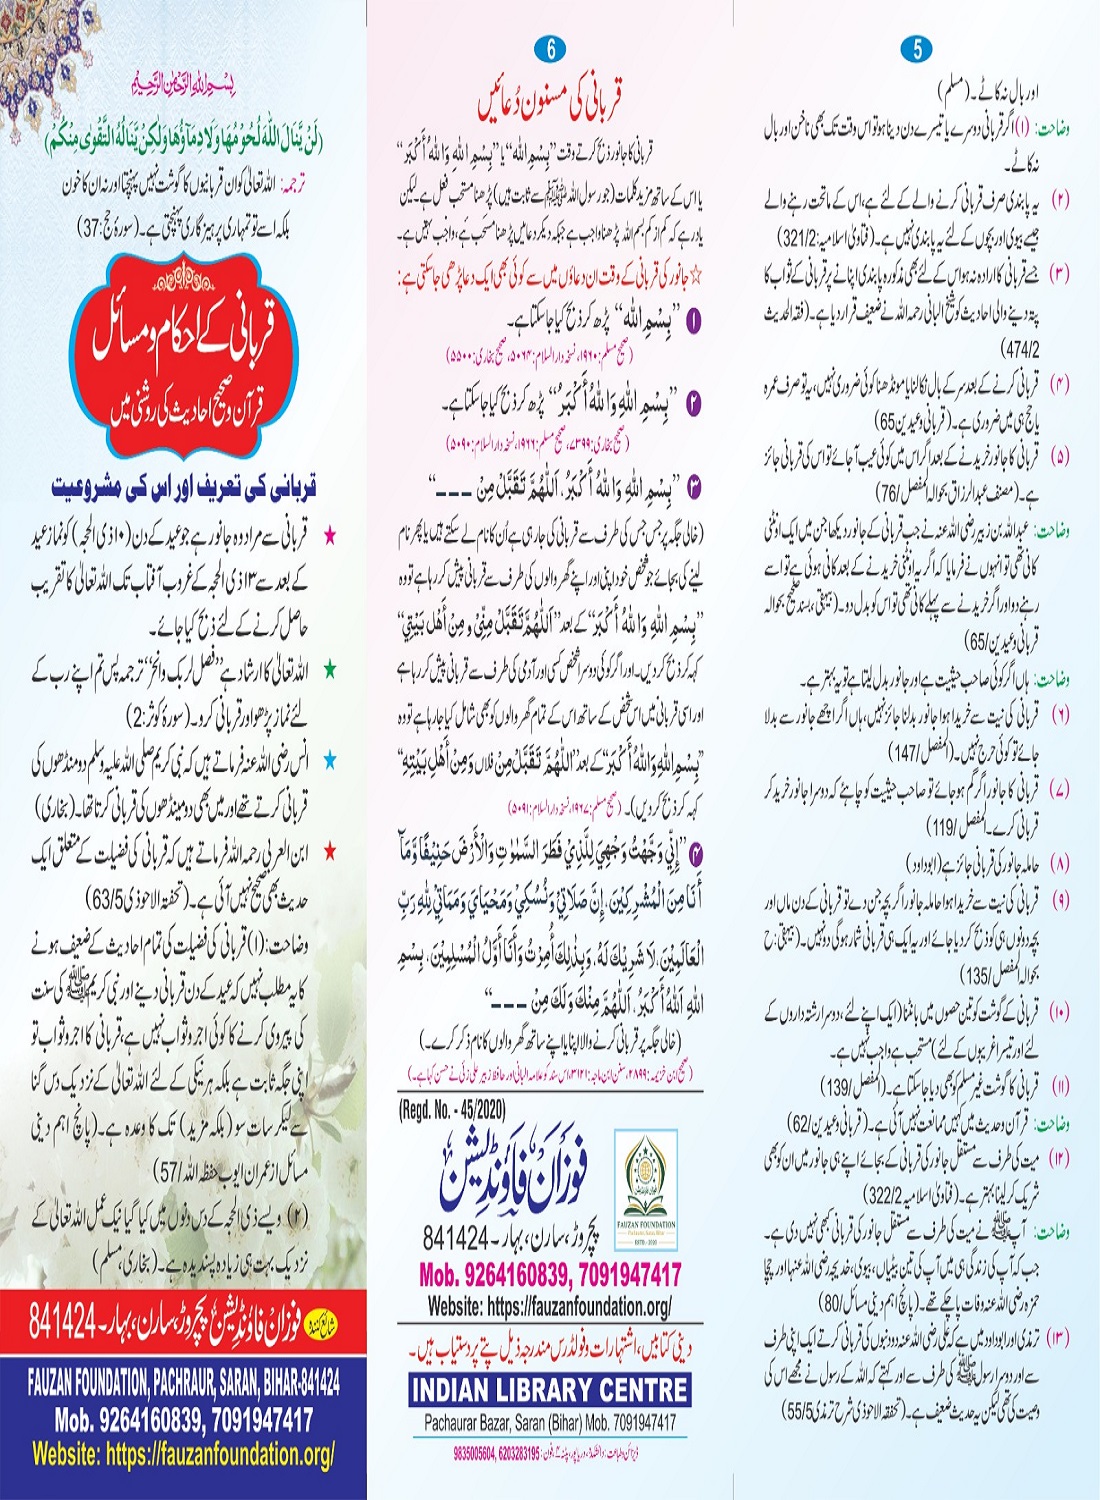 بِسْمِ اللهِ الرَّحْمٰنِ الرَّحِيْمِ
(لَنْ يَّنَالَ اللهَ لُحُوْمُهَا وَلَا دِمَآؤُهَا وَلٰكِنْ يَّنَالُهُ التَّقْوٰى مِنْكُمْ)
ترجمہ: اللہ تعالیٰ کو ان قربانیوں کا گوشت نہیں پہنچتا اور نہ ان کا خون
بلکہ اسے تو تمہاری پرہیزگاری پہنچتی ہے۔ (سورۂ حج:37)
قربانی کے احکام و مسائل
قرآن و صحیح احادیث کی روشنی میں
قربانی کی تعریف اور اس کی مشروعیت
★ قربانی سے مراد وہ جانور ہے جو عید کے دن (۱۰ ذی الحجہ) کو نماز عید
کے بعد سے ۱۳ ذی الحجہ کے غروب آفتاب تک اللہ تعالیٰ کا تقریب
حاصل کرنے کے لئے ذبح کیا جائے۔
★ اللہ تعالیٰ کا ارشاد ہے ”فصل لربک وانحر“ ترجمہ پس تم اپنے رب کے
لئے نماز پڑھو اور قربانی کرو۔ (سورۂ کوثر:2)
★ انس رضی اللہ عنہ فرماتے ہیں کہ نبی کریم صلی اللہ علیہ وسلم دو منڈھوں کی
قربانی کرتے تھے اور میں بھی دو مینڈھوں کی قربانی کرتا تھا۔ (بخاری)
★ ابن العربی رحمہ اللہ فرماتے ہیں کہ قربانی کی فضیلت کے متعلق ایک
حدیث بھی صحیح نہیں آئی ہے۔ (تحفۃ الاحوذی 63/5)
وضاحت: (۱) قربانی کی فضیلت کی تمام احادیث کے ضعیف ہونے
کا یہ مطلب نہیں کہ عید کے دن قربانی دینے اور نبی کریم ﷺ کی سنت
کی پیروی کرنے کا کوئی اجر و ثواب نہیں ہے، قربانی کا اجر و ثواب تو
اپنی جگہ ثابت ہے بلکہ ہر نیکی کے لئے اللہ تعالیٰ کے نزدیک دس گنا
سے لیکر سات سو (بلکہ مزید) تک کا وعدہ ہے۔ (پانچ اہم دینی
مسائل از عمران ایوب حفظہ اللہ /57)
(۲) ویسے ذی الحجہ کے دس دنوں میں کیا گیا نیک عمل اللہ تعالیٰ کے
نزدیک بہت ہی زیادہ پسندیدہ ہے۔ (بخاری، مسلم)
شائع کنندہ فوزان فاؤنڈیشن پچروڑ، سارن، بہار۔ 841424
FAUZAN FOUNDATION, PACHRAUR, SARAN, BIHAR-841424
Mob. 9264160839, 7091947417
Website: https://fauzanfoundation.org/
6
قربانی کی مسنون دُعائیں
قربانی کا جانور ذبح کرتے وقت ”بِسْمِ اللہ“ یا ”بِسْمِ اللهِ وَاللهُ أَكْبَرُ“
یا اس کے ساتھ مزید کلمات (جو رسول اللہ ﷺ سے ثابت ہیں) پڑھنا مستحب فعل ہے۔ لیکن
یاد رہے کہ کم از کم بسم اللہ پڑھنا واجب ہے جبکہ دیگر دعائیں پڑھنا مستحب ہے، واجب نہیں ہے۔
☆ جانور کی قربانی کے وقت ان دعاؤں میں سے کوئی بھی ایک دعا پڑھی جا سکتی ہے:
۱ ”بِسْمِ الله“ پڑھ کر ذبح کیا جا سکتا ہے۔
(صحیح مسلم:۱۹۶۰، نسخہ دارالسلام:۵۰۶۴، صحیح بخاری:۵۵۰۰)
۲ ”بِسْمِ اللهِ وَاللهُ أَكْبَرُ“ پڑھ کر ذبح کیا جا سکتا ہے۔
(صحیح بخاری:۷۳۹۹، صحیح مسلم:۱۹۶۶، نسخہ دارالسلام:۵۰۹۰)
۳ ”بِسْمِ اللهِ وَاللهُ أَكْبَرُ، اَللّٰهُمَّ تَقَبَّلْ مِنْ ـ ـ ـ“
(خالی جگہ پر جس جس کی طرف سے قربانی کی جا رہی ہے اُن کا نام لے سکتے ہیں یا پھر نام
لینے کی بجائے جو شخص خود اپنی اور اپنے گھر والوں کی طرف سے قربانی پیش کر رہا ہے تو وہ
”بِسْمِ اللهِ وَاللهُ أَكْبَرُ“ کے بعد ”اَللّٰهُمَّ تَقَبَّلْ مِنِّيْ وَ مِنْ أَهْلِ بَيْتِيْ“
کہہ کر ذبح کر دیں۔ اور اگر کوئی دوسرا شخص کسی اور آدمی کی طرف سے قربانی پیش کر رہا ہے
اور اسی قربانی میں اس شخص کے ساتھ اس کے تمام گھر والوں کو بھی شامل کیا جا رہا ہے تو وہ
”بِسْمِ اللهِ وَاللهُ أَكْبَرُ“ کے بعد ”اَللّٰهُمَّ تَقَبَّلْ مِنْ فلاں وَ مِنْ أَهْلِ بَيْتِهٖ“
کہہ کر ذبح کر دیں)۔ (صحیح مسلم:۱۹۶۷، نسخہ دارالسلام:۵۰۹۱)
۴ ”إِنِّيْ وَجَّهْتُ وَجْهِيَ لِلَّذِيْ فَطَرَ السَّمٰوٰتِ وَالْأَرْضَ حَنِيْفًا وَّمَآ
أَنَا مِنَ الْمُشْرِكِيْنَ، إِنَّ صَلَاتِيْ وَنُسُكِيْ وَمَحْيَايَ وَمَمَاتِيْ لِلّٰهِ رَبِّ
الْعَالَمِيْنَ، لَا شَرِيْكَ لَهٗ، وَبِذٰلِكَ أُمِرْتُ وَأَنَا أَوَّلُ الْمُسْلِمِيْنَ، بِسْمِ
اللهِ اَللهُ أَكْبَرُ، اَللّٰهُمَّ مِنْكَ وَلَكَ مِنْ ـ ـ ـ“
(خالی جگہ پر قربانی کرنے والا اپنا یا اپنے ساتھ گھر والوں کا نام ذکر کرے۔)
(صحیح ابن خزیمہ:۲۸۹۹، سنن ابن ماجہ:۳۱۲۱، اس سند کو علامہ البانی اور حافظ زبیر علی زئی نے حسن کہا ہے۔)
(Regd. No. - 45/2020)
فوزان فاؤنڈیشن
FAUZAN FOUNDATION
پچروڑ، سارن، بہار۔ 841424
Mob. 9264160839, 7091947417
Website: https://fauzanfoundation.org/
دینی کتابیں، اشتہارات و فولڈرس مندرجہ ذیل پتے پر دستیاب ہیں۔
INDIAN LIBRARY CENTRE
Pachaurar Bazar, Saran (Bihar) Mob. 7091947417
9835005604, 6203283195
5
اور بال نہ کاٹے۔ (مسلم)
وضاحت: (۱) اگر قربانی دوسرے یا تیسرے دن دینا ہو تو اس وقت تک بھی ناخن اور بال
نہ کاٹے۔
(۲) یہ پابندی صرف قربانی کرنے والے کے لئے ہے، اس کے ماتحت رہنے والے
جیسے بیوی اور بچوں کے لئے یہ پابندی نہیں ہے۔ (فتاویٰ اسلامیہ:321/2)
(۳) جسے قربانی کا ارادہ نہ ہو اس کے لئے بھی مذکورہ پابندی اپنانے پر قربانی کے ثواب کا
پتہ دینے والی احادیث کو شیخ البانی رحمہ اللہ نے ضعیف قرار دیا ہے۔ (فقہ الحدیث
474/2)
(۴) قربانی کرنے کے بعد سر کے بال نکالنا یا مونڈھنا کوئی ضروری نہیں، یہ تو صرف عمرہ
یا حج ہی میں ضروری ہے۔ (قربانی و عیدین 65)
(۵) قربانی کا جانور خریدنے کے بعد اگر اس میں کوئی عیب آ جائے تو اس کی قربانی جائز
ہے۔ (مصنف عبدالرزاق بحوالہ المفصل /76)
وضاحت: عبداللہ بن زبیر رضی اللہ عنہ نے جب قربانی کے جانور دیکھا جن میں ایک اونٹنی
کانی تھی تو انہوں نے فرمایا کہ اگر یہ اونٹنی خریدنے کے بعد کانی ہوئی ہے تو اسے
رہنے دو اور اگر خریدنے سے پہلے کانی تھی تو اس کو بدل دو۔ (بیہقی، بسند صحیح بحوالہ
قربانی و عیدین /65)
وضاحت: ہاں اگر کوئی صاحب حیثیت ہے اور جانور بدل لیتا ہے تو یہ بہتر ہے۔
(۶) قربانی کی نیت سے خریدا ہوا جانور بدلنا جائز نہیں، ہاں اگر اچھے جانور سے بدلا
جائے تو کوئی حرج نہیں۔ (المفصل /147)
(۷) قربانی کا جانور اگر گم ہو جائے تو صاحب حیثیت کو چاہئے کہ دوسرا جانور خرید کر
قربانی کرے۔ (المفصل /119)
(۸) حاملہ جانور کی قربانی جائز ہے (ابوداود)
(۹) قربانی کی نیت سے خریدا ہوا حاملہ جانور اگر بچہ جن دے تو قربانی کے دن ماں اور
بچہ دونوں ہی کو ذبح کر دیا جائے اور یہ ایک ہی قربانی شمار ہوگی دو نہیں۔ (بیہقی: ح
بحوالہ المفصل /135)
(۱۰) قربانی کے گوشت کو تین حصوں میں بانٹنا (ایک اپنے لئے، دوسرا رشتہ داروں کے
لئے اور تیسرا غریبوں کے لئے) مستحب ہے واجب نہیں ہے۔
(۱۱) قربانی کا گوشت غیر مسلم کو بھی دیا جا سکتا ہے۔ (المفصل /139)
وضاحت: قرآن و حدیث میں کہیں ممانعت نہیں آئی ہے۔ (قربانی و عیدین /62)
(۱۲) میت کی طرف سے مستقل جانور کی قربانی کے بجائے اپنے ہی جانور میں ان کو بھی
شریک کر لینا بہتر ہے۔ (فتاویٰ اسلامیہ 322/2)
وضاحت: آپ ﷺ نے میت کی طرف سے مستقل جانور کی قربانی کبھی نہیں دی ہے۔
جب کہ آپ کی زندگی ہی میں آپ کی تین بیٹیاں، بیوی، خدیجہ رضی اللہ عنہا اور چچا
حمزہ رضی اللہ عنہ وفات پا چکے تھے۔ (پانچ اہم دینی مسائل /80)
(۱۳) ترمذی اور ابوداود میں ہے کہ علی رضی اللہ عنہ دو دنبوں کی قربانی کرتے ایک اپنی طرف
سے اور دوسرا رسول ﷺ کی طرف سے اور کہتے کہ اللہ کے رسول نے مجھے اس کی
وصیت کی تھی لیکن یہ حدیث ضعیف ہے۔ (تحفۃ الاحوذی شرح ترمذی 55/5)